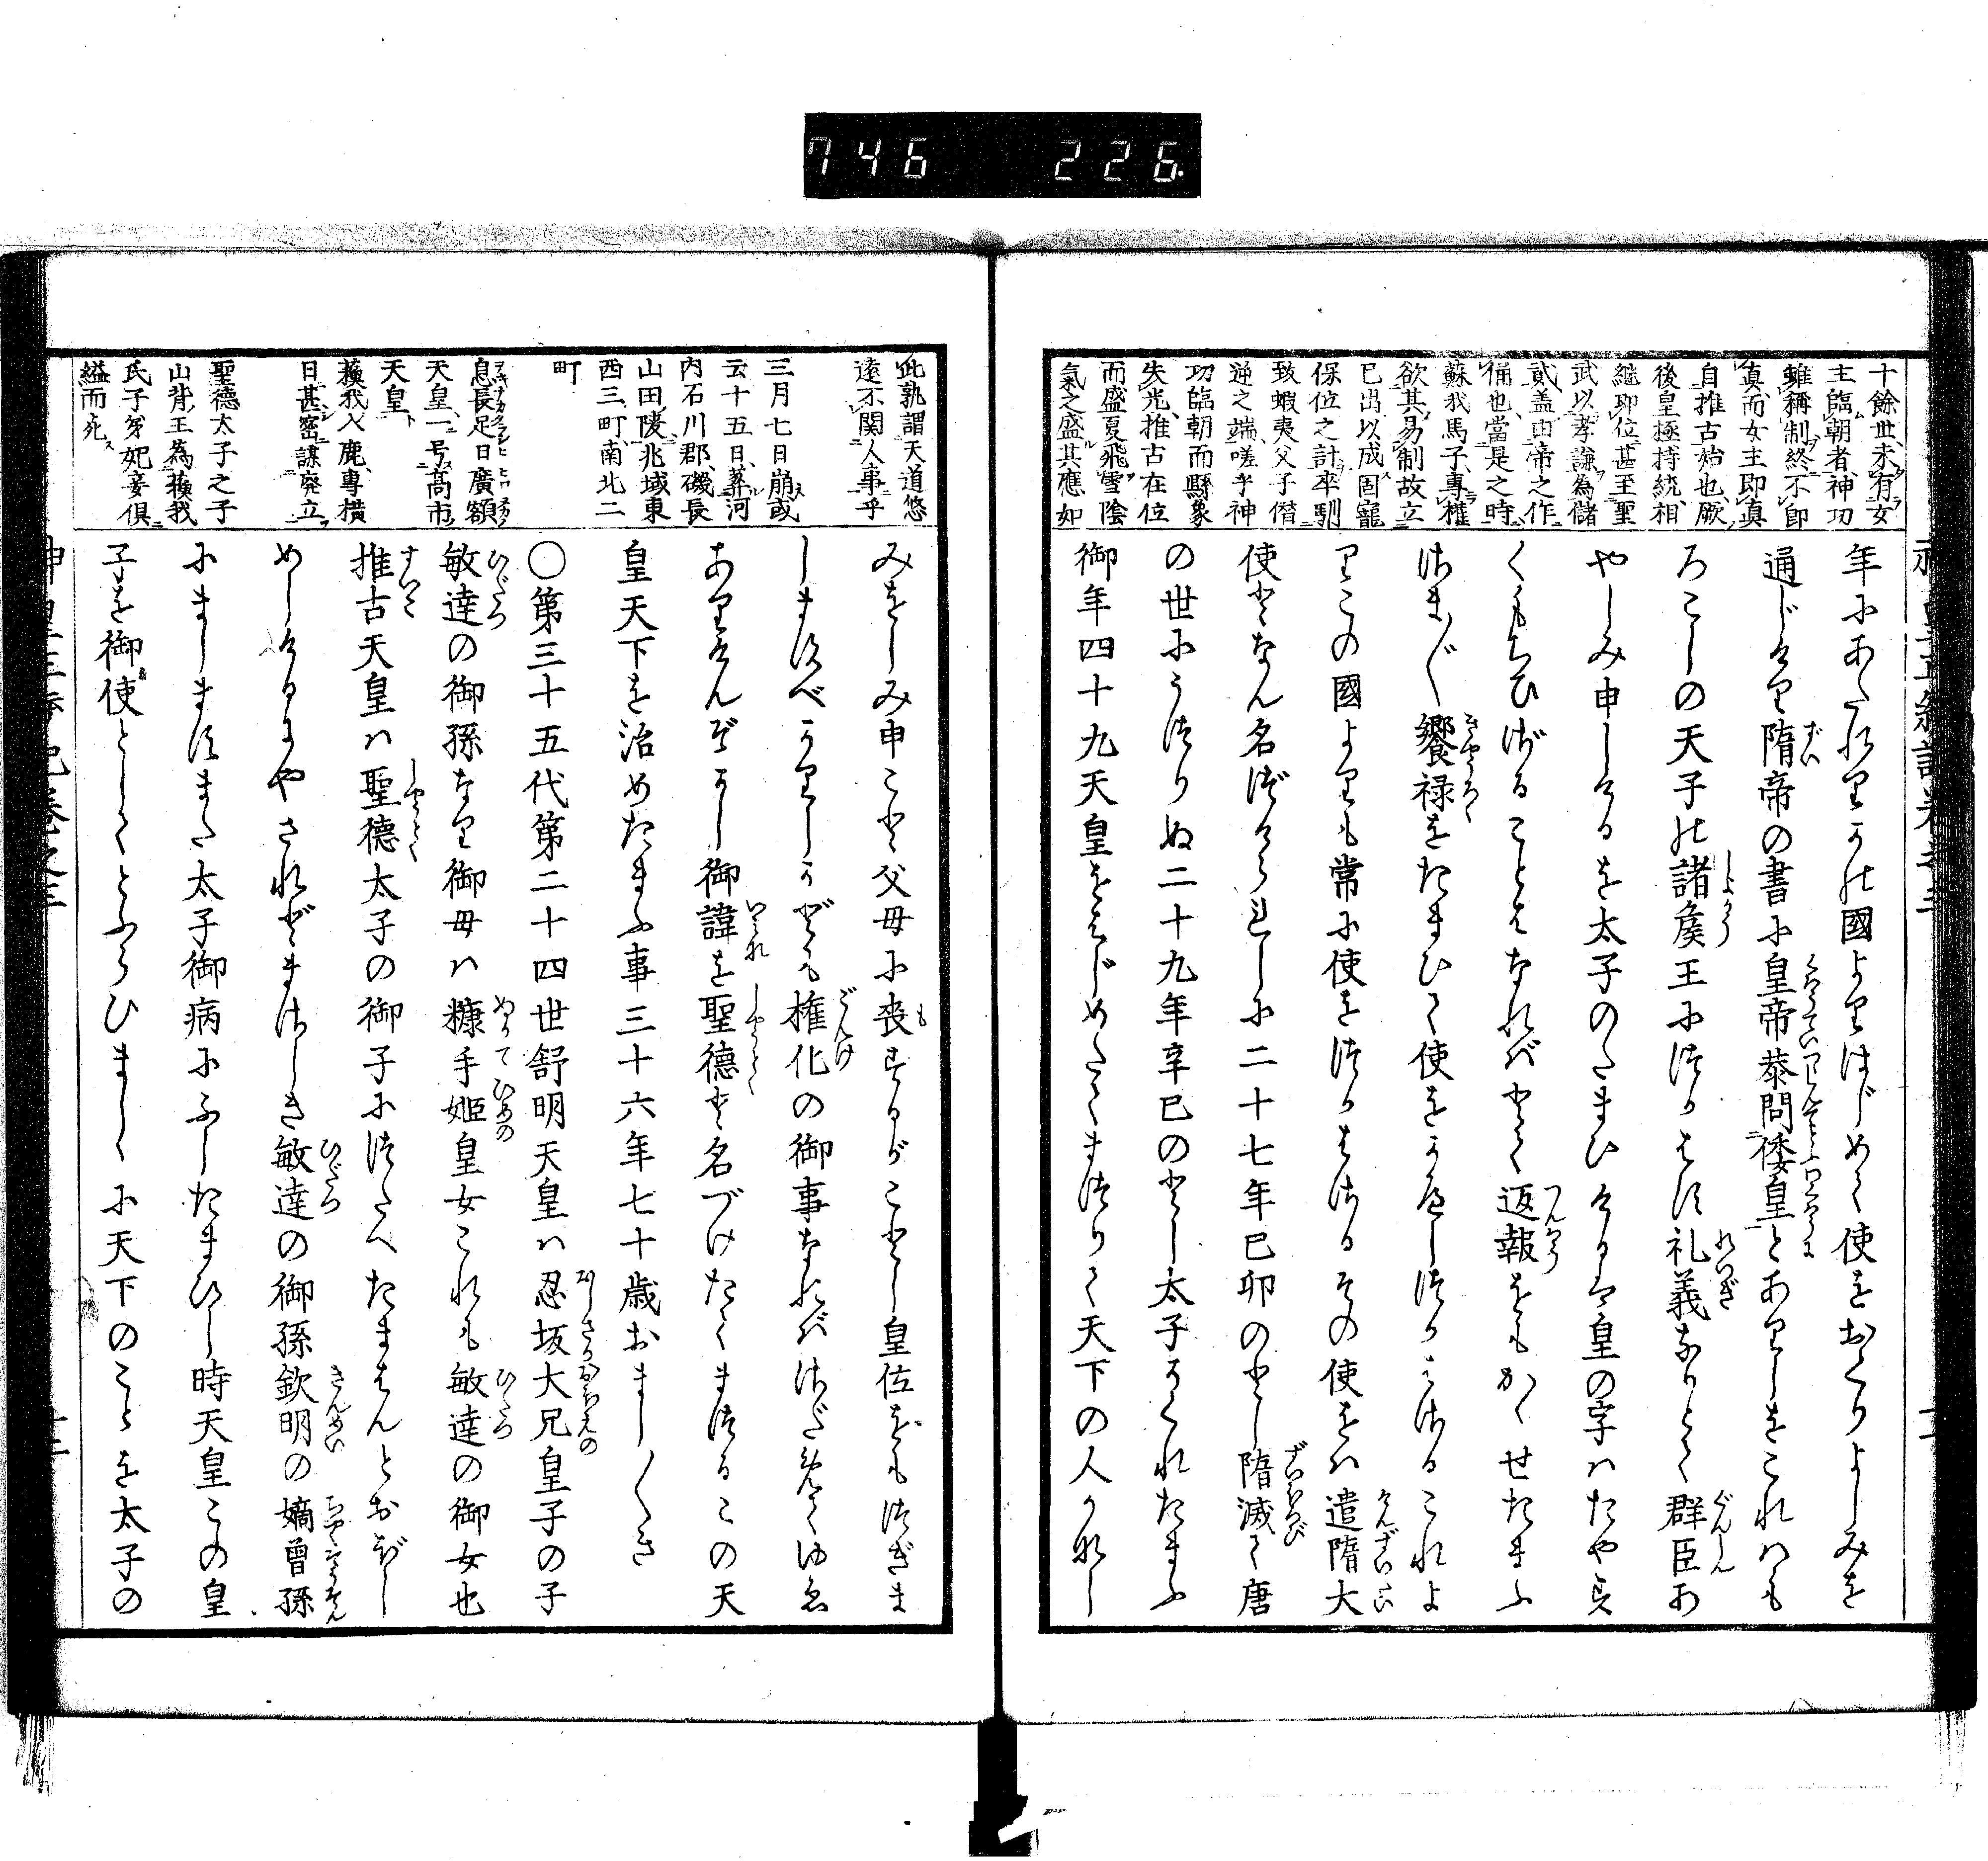 746 226
十餘世未有女
主臨朝者神功
雖稱制終不即
真而女主即真
自推古始也厥
後皇極持統相
継即位甚至聖
武以孝謙為儲
貳蓋由帝之作
俑也當是之時
蘇我馬子專權
欲其易制故立
已出以成固寵
保位之計卒馴
致蝦夷父子僭
逆之端嗟乎神
功臨朝而縣象
失光推古在位
而盛夏飛雪陰
氣之盛其應如
年にあたれりかの國よりはじめて使をおくりよしみを
通じけり隋帝の書に皇帝恭問倭皇とありしをこれハも
ろこしの天子の諸侯王につかはす礼義なりとて群臣あ
やしみ申しけるを太子のたまひけるは皇の字ハたやす
くもちひざることばなれバとて返報をもかゝせたまふ
さま〴〵饗禄をたまひて使をかへしつかはさるこれよ
りこの國よりも常に使をつかはさるその使をハ遣隋大
使となん名づけられしに二十七年己卯のとし隋滅て唐
の世にうつりぬ二十九年辛巳のとし太子かくれたまふ
御年四十九天皇をはじめたてまつりて天下の人かなし
此孰謂天道悠
遠不関人事乎
三月七日崩或
云十五日葬河
内石川郡磯長
山田陵兆域東
西三町南北二
町
息長足日廣額
天皇一号高市
天皇
蘓我入鹿專横
日甚密謀廃立
聖德太子之子
山背王為蘓我
氏子弟妃妾倶
縊而死
みをしみ申こと父母に喪するがごとし皇位をもつぎま
しますべかりしかども権化の御事なれバさだめてゆゑ
ありけんぞかし御諱を聖德と名づけたてまつるこの天
皇天下を治めたまふ事三十六年七十歳おまし〳〵き
〇第三十五代第二十四世舒明天皇ハ忍坂大兄皇子の子
敏達の御孫なり御母ハ糠手姫皇女これも敏達の御女也
推古天皇ハ聖德太子の御子につたへたまはんとおぼし
めしけるにやされどまさしき敏達の御孫欽明の嫡曾孫
にましますまた太子御病にふしたまひし時天皇この皇
子を御使としてとふらひましゝに天下のことを太子の